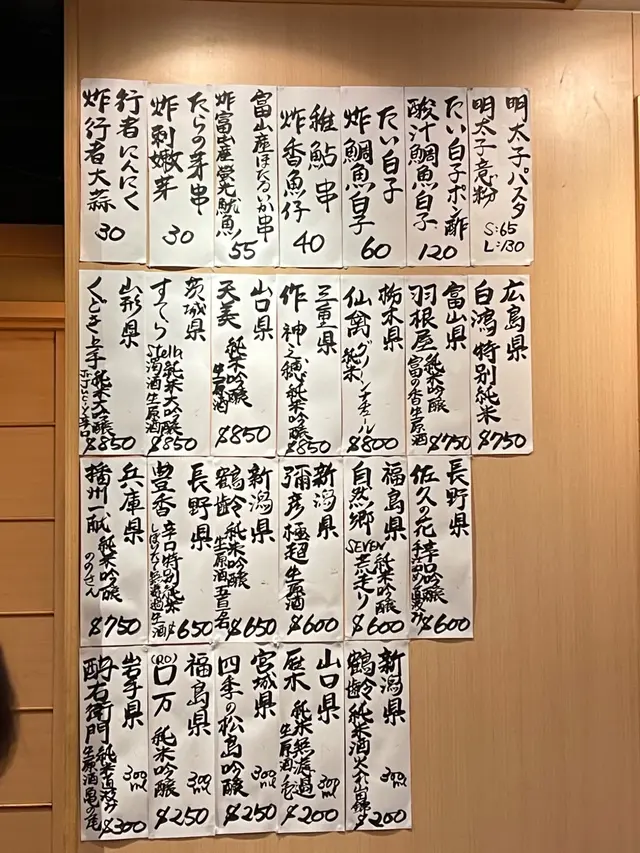 明太子パスタ
明太子意粉
S:65
L:130
たい白子ポン酢
酸汁鯛魚白子
120
たい白子
炸鯛魚白子
60
稚鮎串
炸香魚仔
40
富山産ほたるいか串
炸富山産螢光魷魚
55
たらの芽串
炸刺嫩芽
30
行者にんにく
炸行者大蒜
30
広島県
白鴻特別純米
$750
富山県
羽根屋純米吟醸
富の香生原酒
$750
栃木県
仙禽
純米
$800
三重県
作
純米吟醸
$850
山口県
天美純米吟醸
生原酒
$850
茨城県
すてら
Stella純米大吟醸
生原酒
$850
山形県
くどき上手純米大吟醸
$850
長野県
佐久の花
$600
福島県
自然郷
SEVEN純米吟醸
荒走り
$600
新潟県
彌彦極超生原酒
$600
新潟県
鶴齢純米吟醸
生原酒五百名
$650
長野県
豊香辛口特別純米
$650
兵庫県
播州一献純米吟醸
ののさん
$750
新潟県
鶴齢純米酒
300ml
$200
山口県
純米無濾過
生原酒
300ml
$200
宮城県
四季の松島吟醸
300ml
$250
福島県
ロ万純米吟醸
300ml
$250
岩手県
酉与右衛門
生原酒亀の尾
300ml
$300